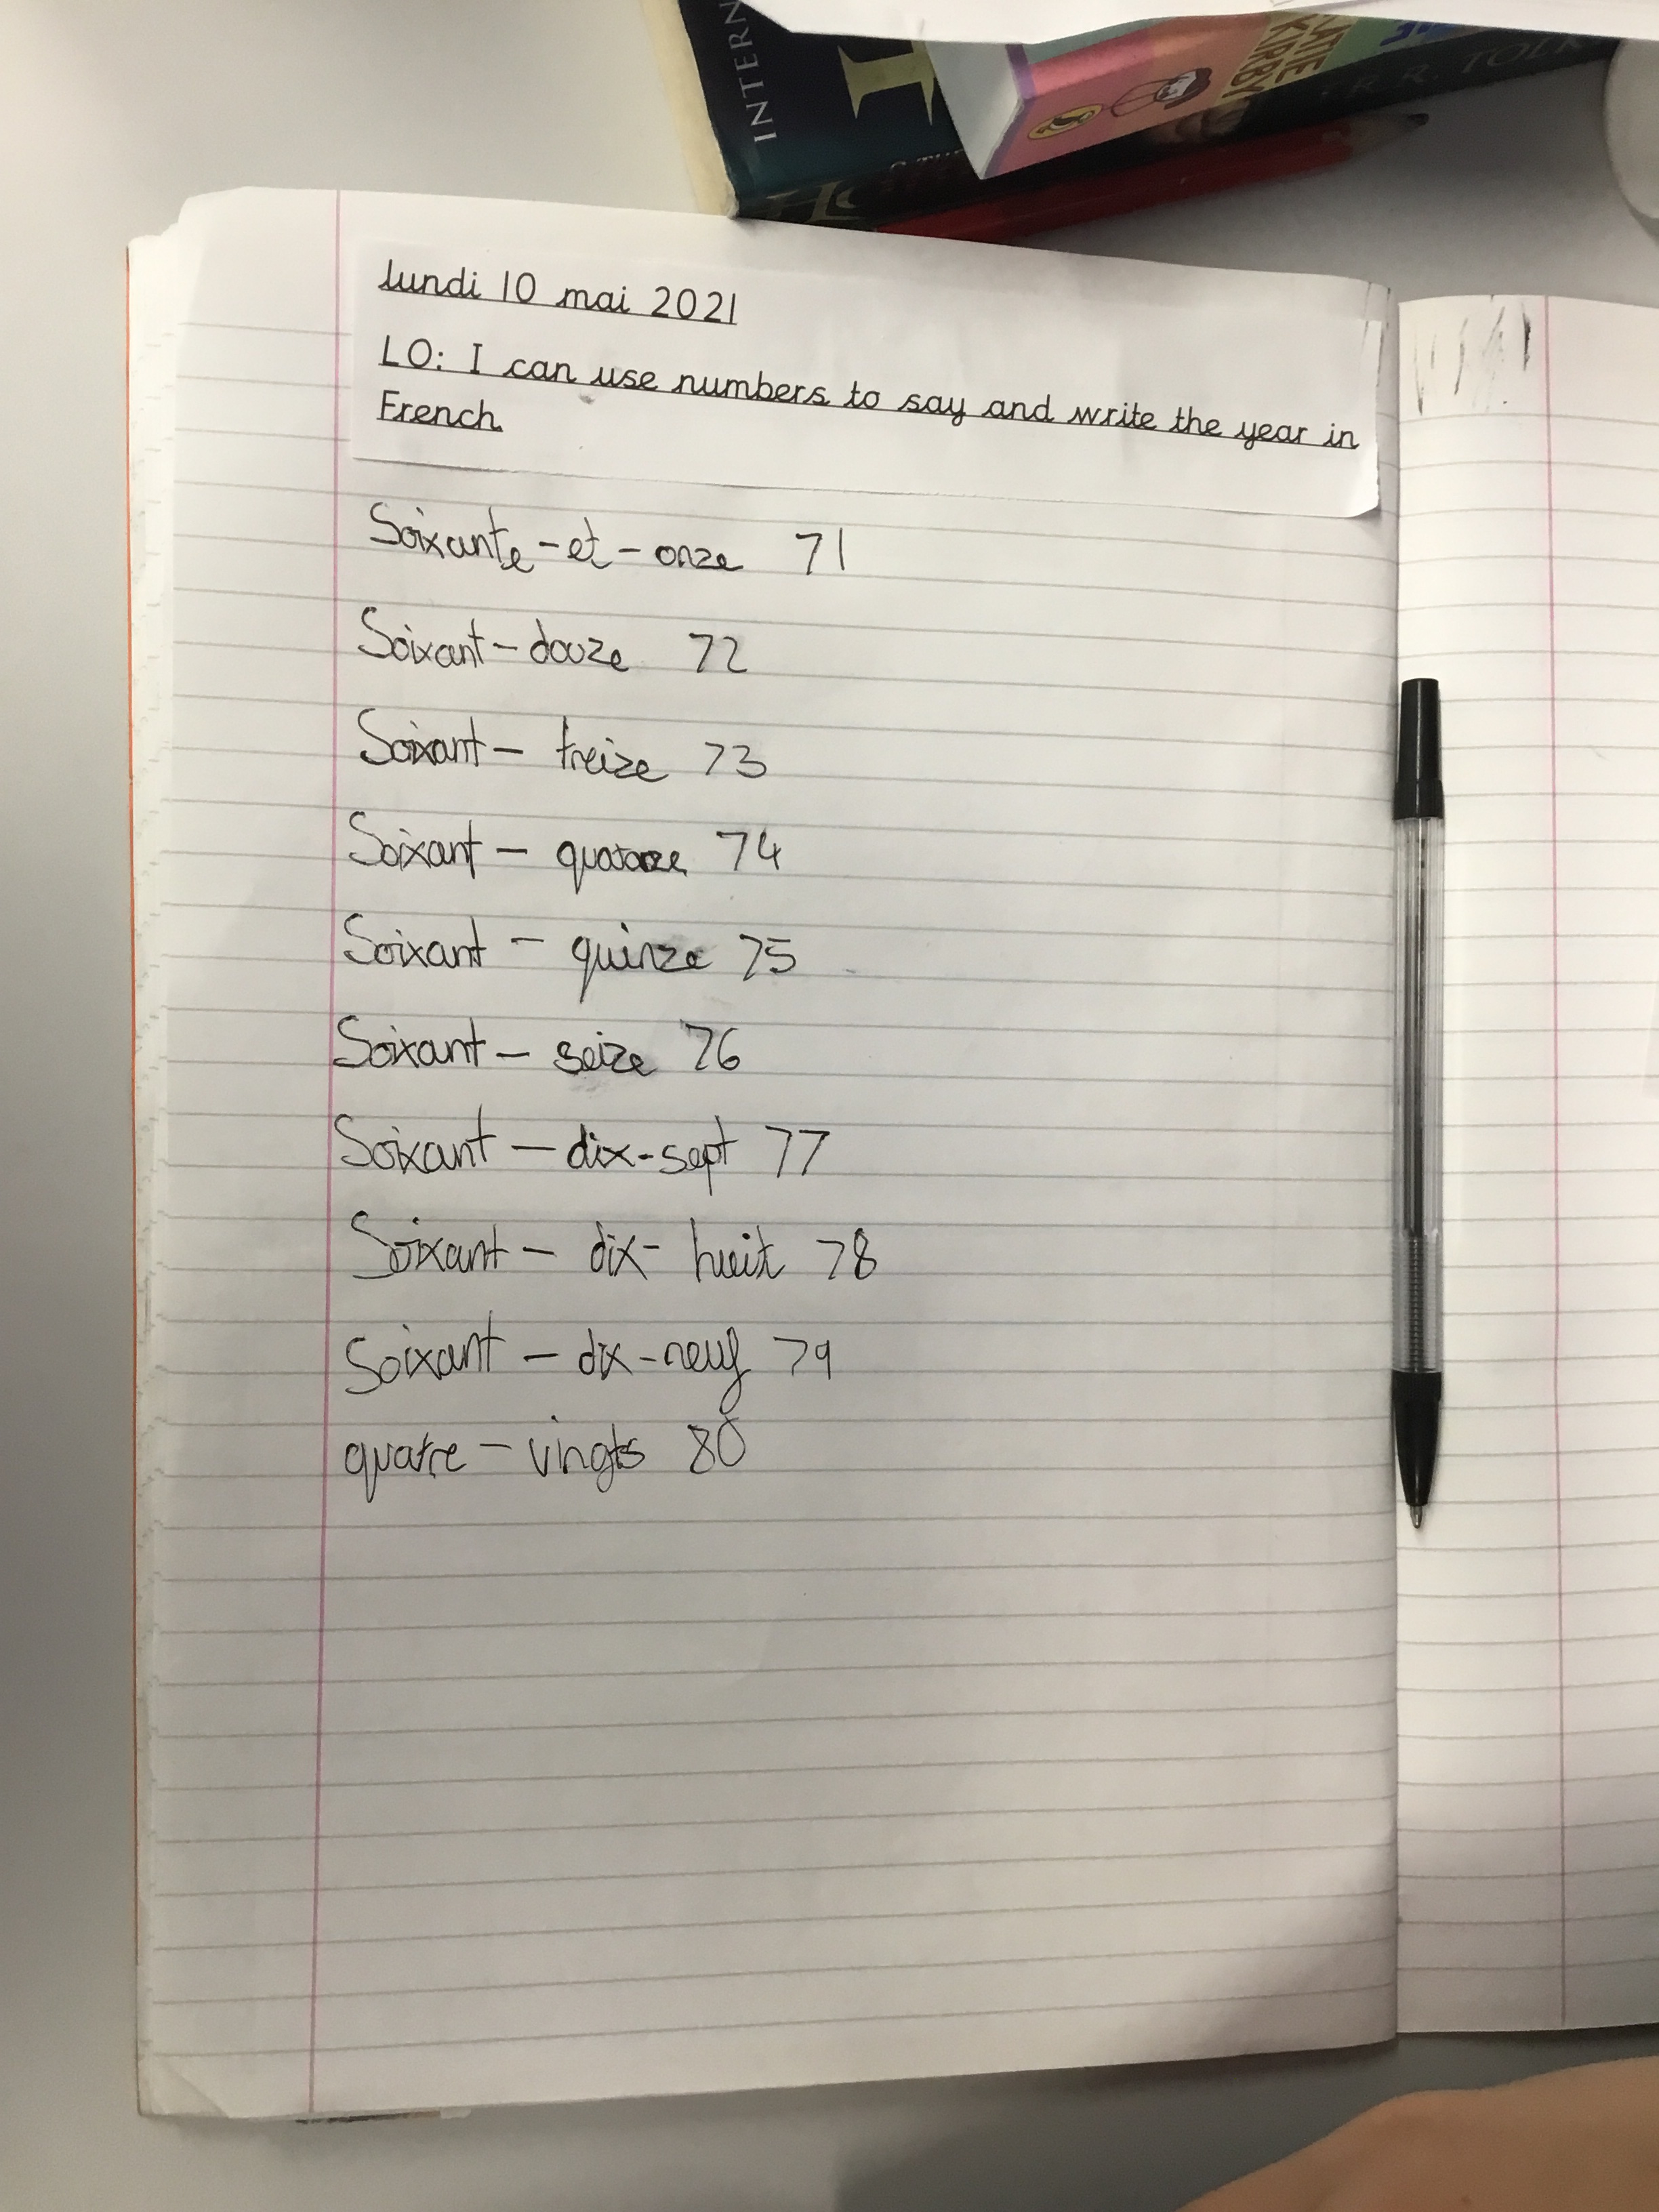 INTERN
KATIE
KIRBY
R. R. TOLK
lundi 10 mai 2021
LO: I can use numbers to say and write the year in
French
Soixante-et-onze 71
Soixant-douze 72
Soixant- treize 73
Soixant - 74
Soixant - quinze 75
Soixant- seize 76
Soixant - dix-sept 77
Soixant - dix- hueit 78
Soixant - dix-neuf 79
quatre - vingts 80